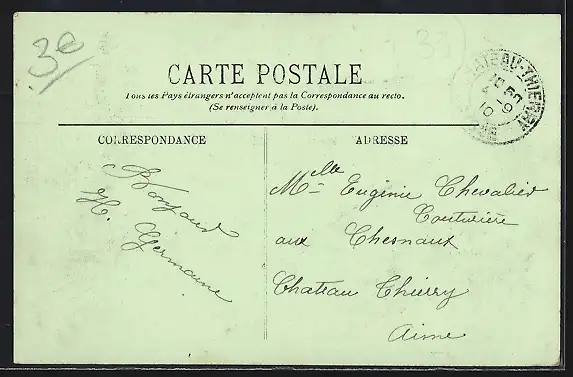 3e
CARTE POSTALE
Tous les Pays étrangers n'acceptent pas la Correspondance au recto.
(Se renseigner à la Poste).
CHATEAU-THIERRY
AISNE
CORRESPONDANCE
ADRESSE
Bonjour
H. Germaine
Melle Eugénie Chevalier
Couturière
aux Chesnaux
Chateau Thierry
Aisne